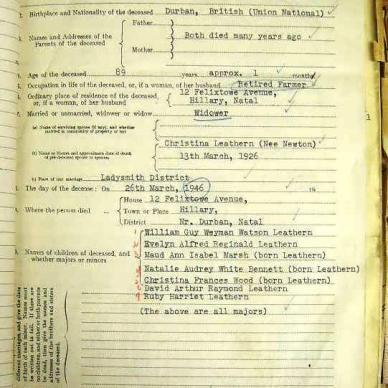 Birthplace and Nationality of the deceased Durban, British (Union National)
Names and Addresses of the Parents of the deceased
Father
Both died many years ago
Mother
Age of the deceased 89 years approx. 1 months
Occupation in life of the deceased, or, if a woman, of her husband Retired Farmer
Ordinary place of residence of the deceased, or, if a woman, of her husband
12 Felixtowe Avenue,
Hillary, Natal
Married or unmarried, widower or widow Widower
Christina Leathern (Nee Newton)
(b) Name or Names and approximate date of death of pre-deceased spouse or spouses
13th March, 1926
(c) Place of last marriage Ladysmith District
The day of the decease: On 26th March, 1946 19
Where the person died
House 12 Felixtowe Avenue,
Town or Place Hillary,
District Nr. Durban, Natal
Names of children of deceased, and whether majors or minors
William Guy Weyman Watson Leathern
Evelyn Alfred Reginald Leathern
Maud Ann Isabel Marsh (born Leathern)
Natalie Audrey White Bennett (born Leathern)
Christina Frances Wood (born Leathern)
David Arthur Raymond Leathern
Ruby Harriet Leathern
(The above are all majors)